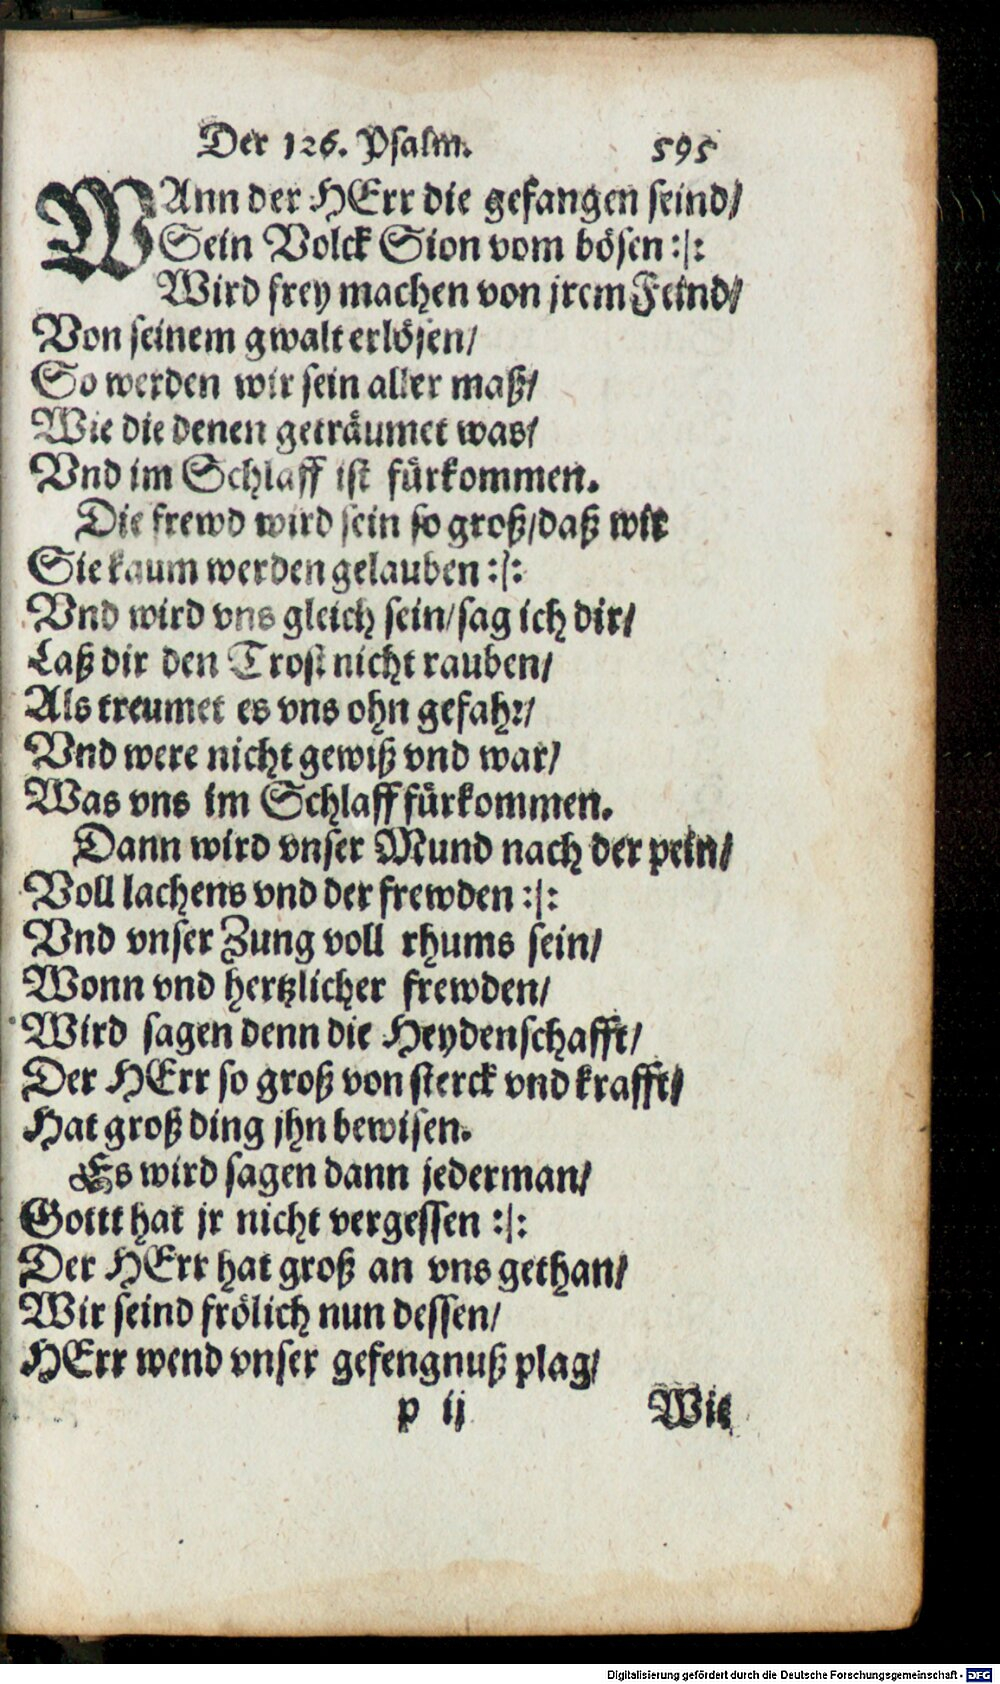 Der 126. Psalm. 595
WAnn der HErr die gefangen seind/
Sein Volck Sion vom bösen :/:
Wird frey machen von jrem Feind/
Von seinem gwalt erlösen/
So werden wir sein aller maß/
Wie die denen geträumet was/
Vnd im Schlaff ist fürkommen.
Die frewd wird sein so groß/daß wir
Sie kaum werden gelauben :/:
Vnd wird vns gleich sein/sag ich dir/
Laß dir den Trost nicht rauben/
Als treumet es vns ohn gefahr/
Vnd were nicht gewiß vnd war/
Was vns im Schlaff fürkommen.
Dann wird vnser Mund nach der pein/
Voll lachens vnd der frewden :/:
Vnd vnser Zung voll rhums sein/
Wonn vnd hertzlicher frewden/
Wird sagen denn die Heydenschafft/
Der HErr so groß von sterck vnd krafft/
Hat groß ding jhn bewisen.
Es wird sagen dann jederman/
Gottt hat jr nicht vergessen :/:
Der HErr hat groß an vns gethan/
Wir seind frölich nun dessen/
HErr wend vnser gefengnuß plag/
p ij Wie
Digitalisierung gefördert durch die Deutsche Forschungsgemeinschaft - DFG